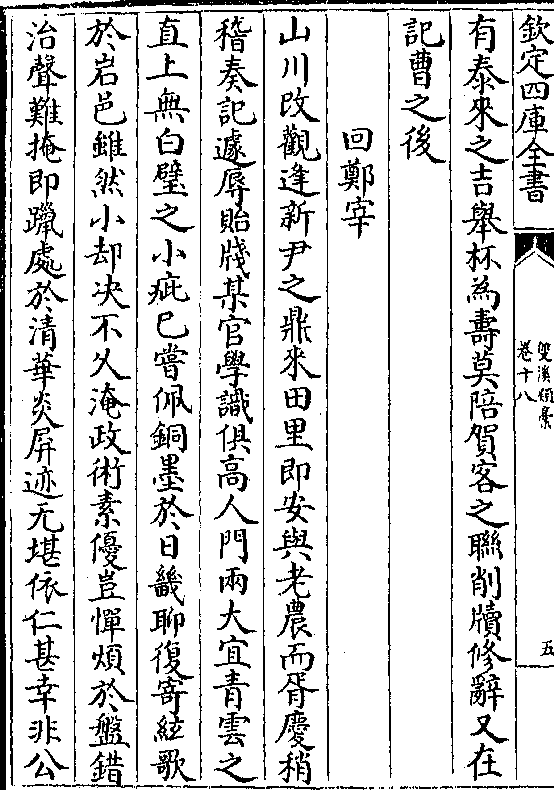 欽定四庫全書
雙溪類藁
卷十八
五
有泰來之吉舉杯為壽莫陪賀客之聯削牘修辭又在
記曹之後
回鄭宰
山川改觀逢新尹之鼎來田里即安與老農而胥慶稍
稽奏記遽辱貽牋某官學識俱高人門兩大宜青雲之
直上無白璧之小疵已嘗佩銅墨於日畿聊復寄絃歌
於岩邑雖然小却决不久淹政術素優豈憚煩於盤錯
治聲難掩即躐處於清華炎屏迹无堪依仁甚幸非公